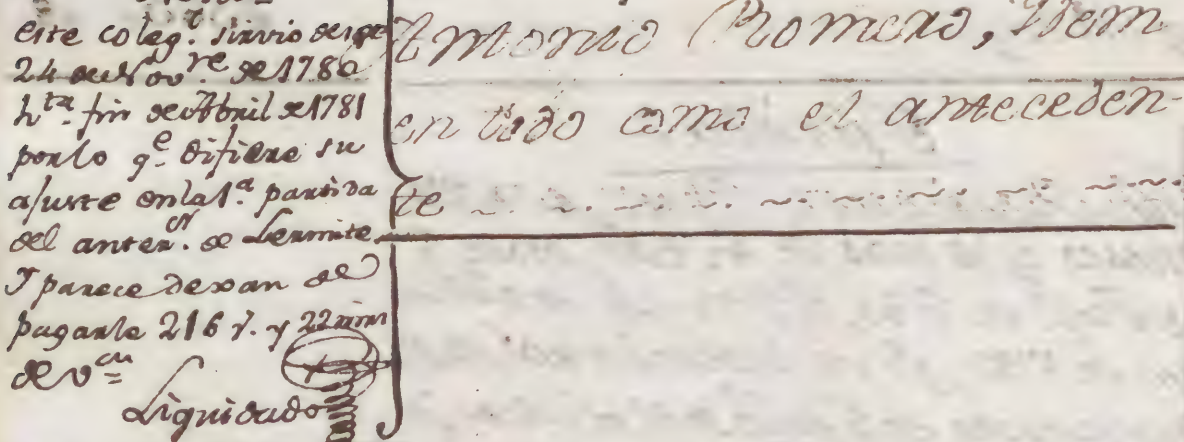 este coleg.l sirvio desde
24 de Nov.re de 1780
h.ta fin de Abril de 1781
por lo q.e difiere su
ajuste en la 1.a partida
del anter.or de Lermite
Y parece dexan de
pagarle 216 r.s y 22 mrs
de v.on
Liquidado
Antonio Romero, Idem
en todo como el anteceden-
te